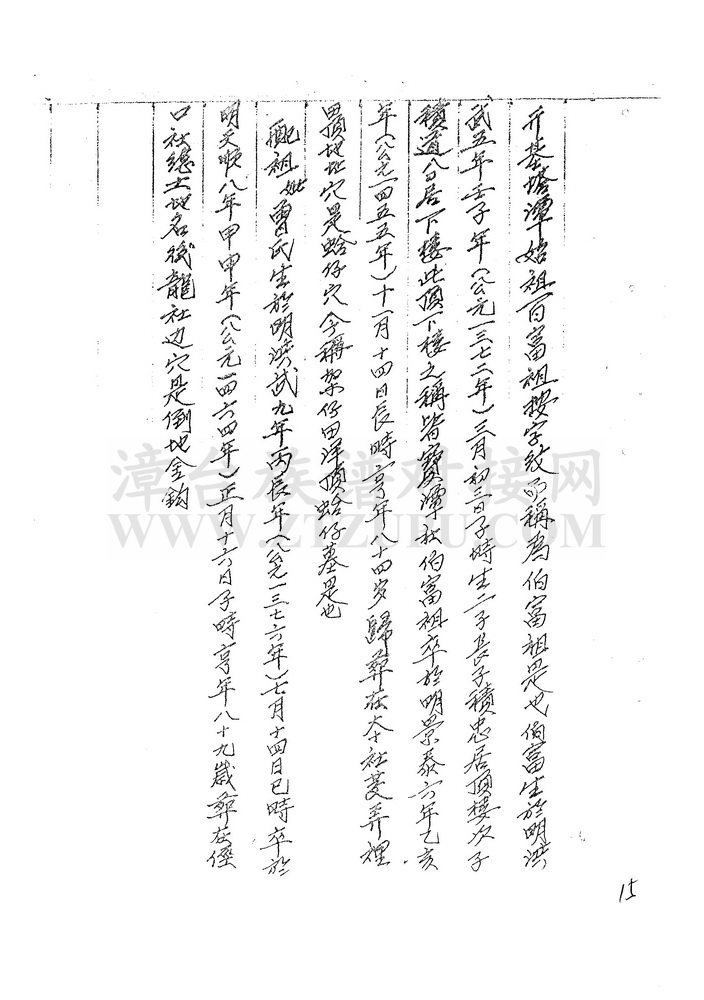 开基塔潭始祖百富祖按字紋即稱為伯富祖是也伯富生於明洪
武五年壬子年(公元一三七二年)三月初三日子時生二子長子積忠居頂楼次子
積道分居下楼此頂下楼之稱皆寶潭社伯富祖卒於明景泰六年乙亥
年(公元一四五五年)十一月十四日辰時享年八十四岁歸葬在大社蔓弄裡
田頂地穴是蛤仔穴今稱墓仔田洋頂蛤仔墓是也
配祖妣曾氏生於明洪武九年丙辰年(公元一三七六年)七月十四日巳時卒於
明天順八年甲申年(公元一四六四年)正月十六日子時享年八十九歲葬在
口社總土地名後龍社边穴是倒地金鈎
15
漳台族谱对接网
WWW.ZTZUPU.COM